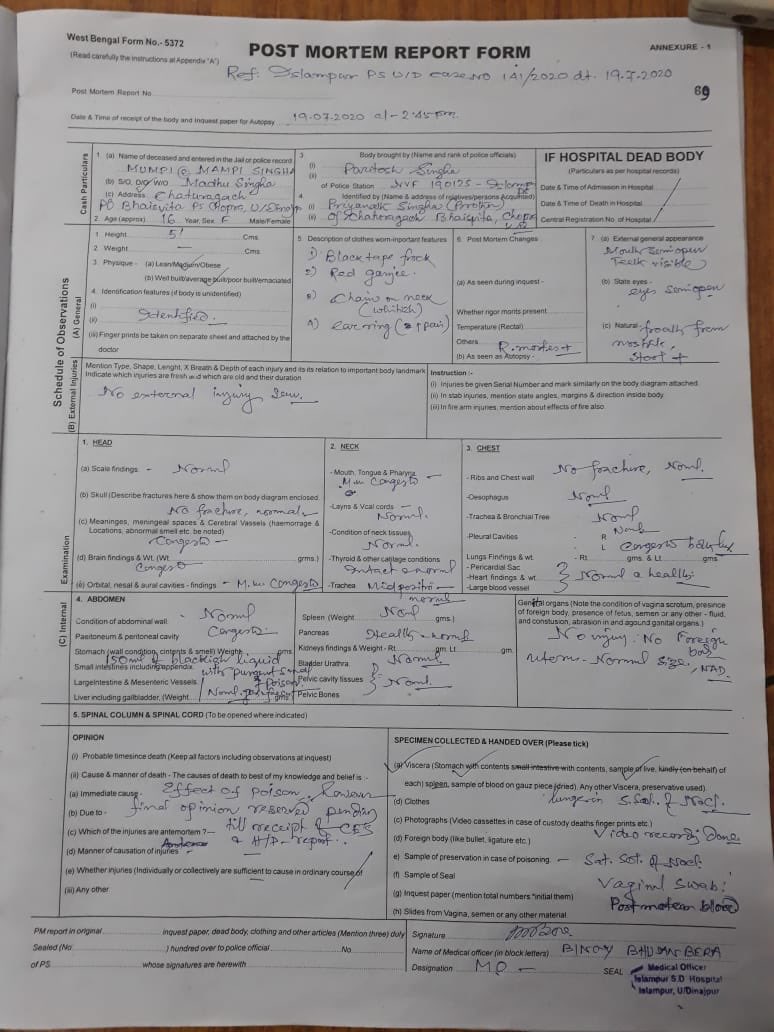 West Bengal Form No.- 5372
(Read carefully the instructions at Appendix "A")
POST MORTEM REPORT FORM
ANNEXURE - 1
Ref: Islampur PS U/D case NO 141/2020 dt. 19.7.2020
Post Mortem Report No.
69
Date & Time of receipt of the body and Inquest paper for Autopsy 19.07.2020 at - 2:45 pm.
Cash Particulars
1. (a) Name of deceased and entered in the Jail or police record
MUMPI @ MAMPI SINGHA
(b) S/O, D/O, W/O Madhu Singha
(c) Address Chaturagach
PO Bhaispita PS Chopra, U/Dinajpur
2. Age (approx) 16 Year, Sex F Male/Female
3. Body brought by (Name and rank of police officials)
(i) Paritosh Singha
(ii)
of Police Station NVF 190125 - Islampur PS
4. Identified by (Name & address of relatives/persons Acquinted)
(i) Priyanath Singha
(ii) Of Chaturagach Bhaispita, Chopra
IF HOSPITAL DEAD BODY
(Particulars as per hospital records)
Date & Time of Admission in Hospital
Date & Time of Death in Hospital
Central Registration No. of Hospital
Schedule of Observations
(A) General
1. Height 5' Cms.
2. Weight — Cms.
3. Physique - (a) Lean/Madium/Obese
(b) Well built/average built/poor built/emaciated
4. Identification features (if body is unidentified)
(i)
(ii) Identified.
(iii) Finger prints be taken on separate sheet and attached by the
doctor
5 Description of clothes worn-important features
1) Black tape frock
2) Red ganjee.
3) Chain on neck
(whitish)
4) ear ring (1 pair)
6. Post Mortem Changes
(a) As seen during inquest -
Whether rigor monts present
Temperature (Rectal)
Others R. mortes +
(b) As seen as Autopsy -
7. (a) External general appearance
Mouth semiopen
Teeth visible
(b) State eyes -
eyes semiopen
(c) Natural froath from
nostrils,
Stool +
(B) External Injuries
Mention Type, Shape, Lenght, X Breath & Depth of each injury and its its relation to important body landmark
Indicate which injuries are fresh and which are old and their duration
No external injury seen.
Instruction :-
(i) Injuries be given Serial Number and mark similarly on the body diagram attached.
(ii) In stab injuries, mention state angles, margins & direction inside body.
(iii) In fire arm injuries, mention about effects of fire also.
(C) Internal Examination
1. HEAD
(a) Scale findings - Normal
(b) Skull (Describe fractures here & show them on body diagram enclosed
No fracture, normal.
(c) Meaninges, meningeal spaces & Cerebral Vessels (haemorrage &
Locations, abnormal smell etc. be noted)
Congested
(d) Brain findings & Wt. (Wt. grms.)
Congested
(e) Orbital, nesal & aural cavities - findings - M.m Congested
2. NECK
- Mouth, Tongue & Pharynx
M.m Congested
- Layns & Vcal cords -
Normal.
-Condition of neck tissues
Normal.
-Thyroid & other cartilage conditions
Intact & normal
-Trachea Midposition
normal
3. CHEST
- Ribs and Chest wall No fracture, Normal.
-Oesophagus Normal
-Trachea & Bronchial Tree Normal
-Pleural Cavities - R Normal
L
Lungs Findings & wt - Rt. gms & Lt gms Congested both
- Pericardial Sac
-Heart findings & wt
-Large blood vessel
Normal & healthy.
4. ABDOMEN
Condition of abdominal wall Normal
Paeitoneum & peritoneal cavity Congested
Stomach (wall condition, contents & smell) Weight gms.
150ml of blackish liquid
with pungent smell
of poison.
Small intestines including appendix
LargeIntestine & Mesenteric Vessels
Liver including gallbladder, (Weight gms)
Spleen (Weight Normal gms.)
Pancreas Healthy - normal
Kidneys findings & Weight - Rt. gm, Lt gm.
Bladder Urathra Normal
Pelvic cavity tissues
Pelvic Bones
Normal.
Genital organs (Note the condition of vagina scrotum, presence
of foreign body, presence of fetus, semen or any other - fluid,
and constusion, abrasion in and agound ganital organs.)
No injury. No Foreign
body
uterus - Normal size, NAD.
5. SPINAL COLUMN & SPINAL CORD (To be opened where indicated)
OPINION
(i) Probable timesince death (Keep all factors including observations at inquest)
(ii) Cause & manner of death - The causes of death to best of my knowledge and belief is :-
(a) Immediate cause - Effect of poison, however
(b) Due to - final opinion reserved pending
till receipt of CFS
& H/P - report.
(c) Which of the injuries are antemortem ? —
(d) Manner of causation of injuries —
(e) Whether injuries (Individually or collectively are sufficient to cause in ordinary course of
(iii) Any other
SPECIMEN COLLECTED & HANDED OVER (Please tick)
(a) Viscera (Stomach with contents small intestive with contents, sample of live, kindly (on behalf) of
each) spleen, sample of blood on gauz piece (dried). Any other Viscera, preservative used).
(d) Clothes in S. Sol. of Nacl.
(c) Photographs (Video cassettes in case of custody deaths finger prints etc.)
(d) Foreign body (like bullet, ligature etc.) Video recording Done
e) Sample of preservation in case of poisoning. — Sat. Sol. of Nacl.
(f) Sample of Seal
(g) Inquest paper (mention total numbers *initial them)
(h) Slides from Vagina, semen or any other material
Vaginal swab:
Postmortem blood
PM report in original inquest paper, dead body, clothing and other articles (Mention three) duly
Sealed (No ) hundred over to police official No
of PS whose signatures are herewith
Signature
Name of Medical officer (in block letters) BINOY BHUSAN BERA
Designation MO -
SEAL
Medical Officer
Islampur S.D Hospital
Islampur, U/Dinajpur